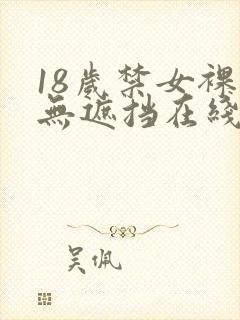 18歲禁女裸
無遮挡在綫
吴佩